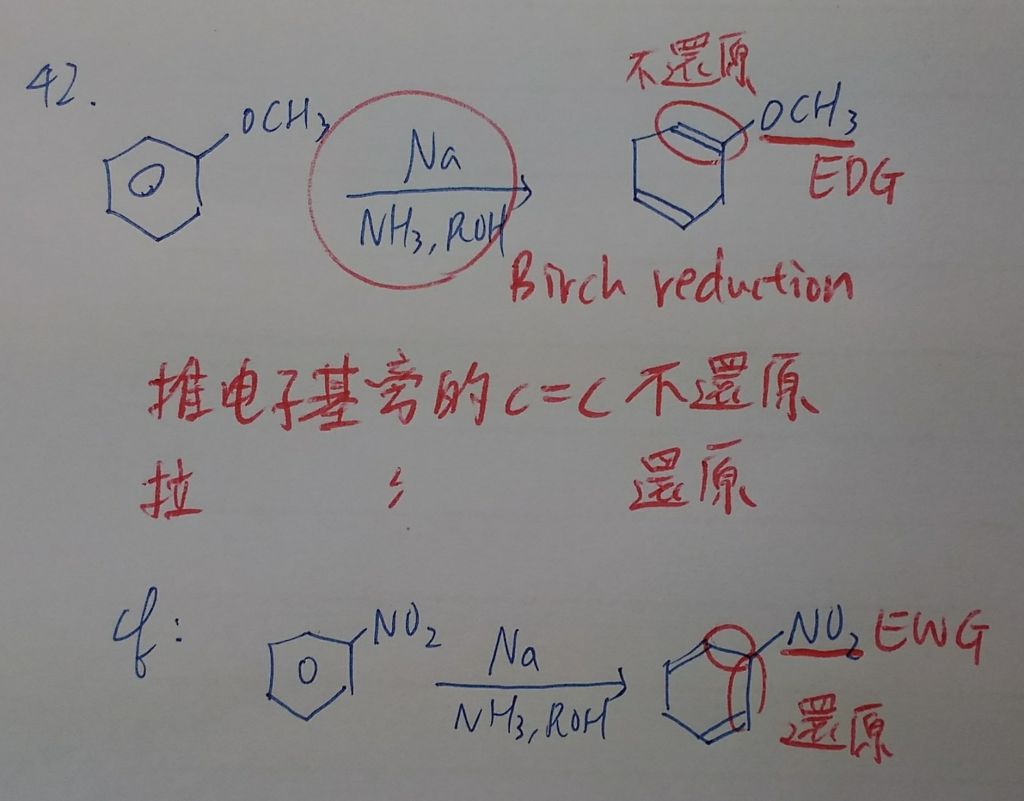 42.
不還原
OCH₃
Na
NH₃, ROH
OCH₃
EDG
Birch reduction
推电子基旁的 C=C 不還原
拉 〃 還原
cf:
NO₂
Na
NH₃, ROH
NO₂ EWG
還原